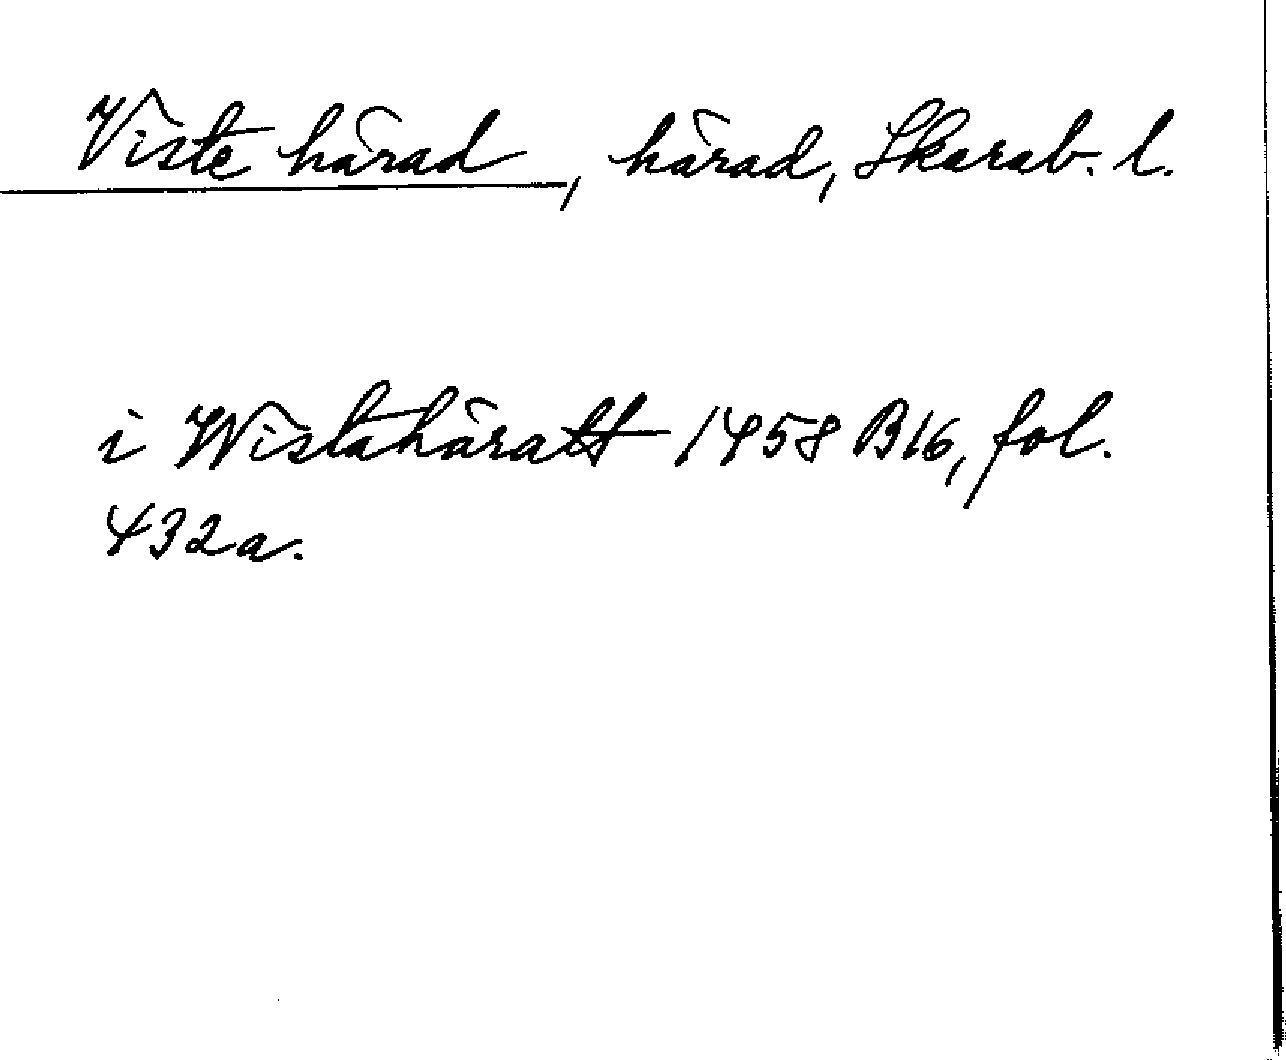 Viste härad, härad, Skarab. l.
i Wistahäratt 1458 B16, fol.
432a.